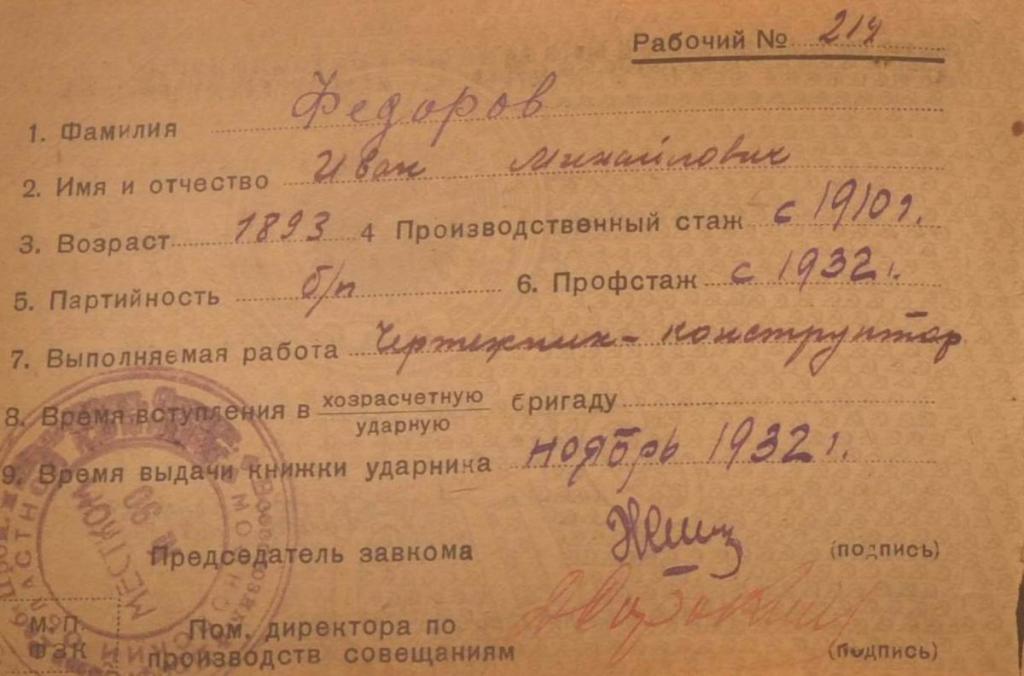 Рабочий № 214
1. Фамилия Федоров
2. Имя и отчество Иван Михайлович
3. Возраст 1893 4 Производственный стаж с 1910 г.
5. Партийность б/п 6. Профстаж с 1932 г.
7. Выполняемая работа Чертежник-конструктор
8. Время вступления в хозрасчетную
ударную бригаду
9. Время выдачи книжки ударника ноябрь 1932 г.
МЕСТКОМ
Председатель завкома (подпись)
М. П.
ФЗК
Пом. директора по
производств совещаниям (подпись)